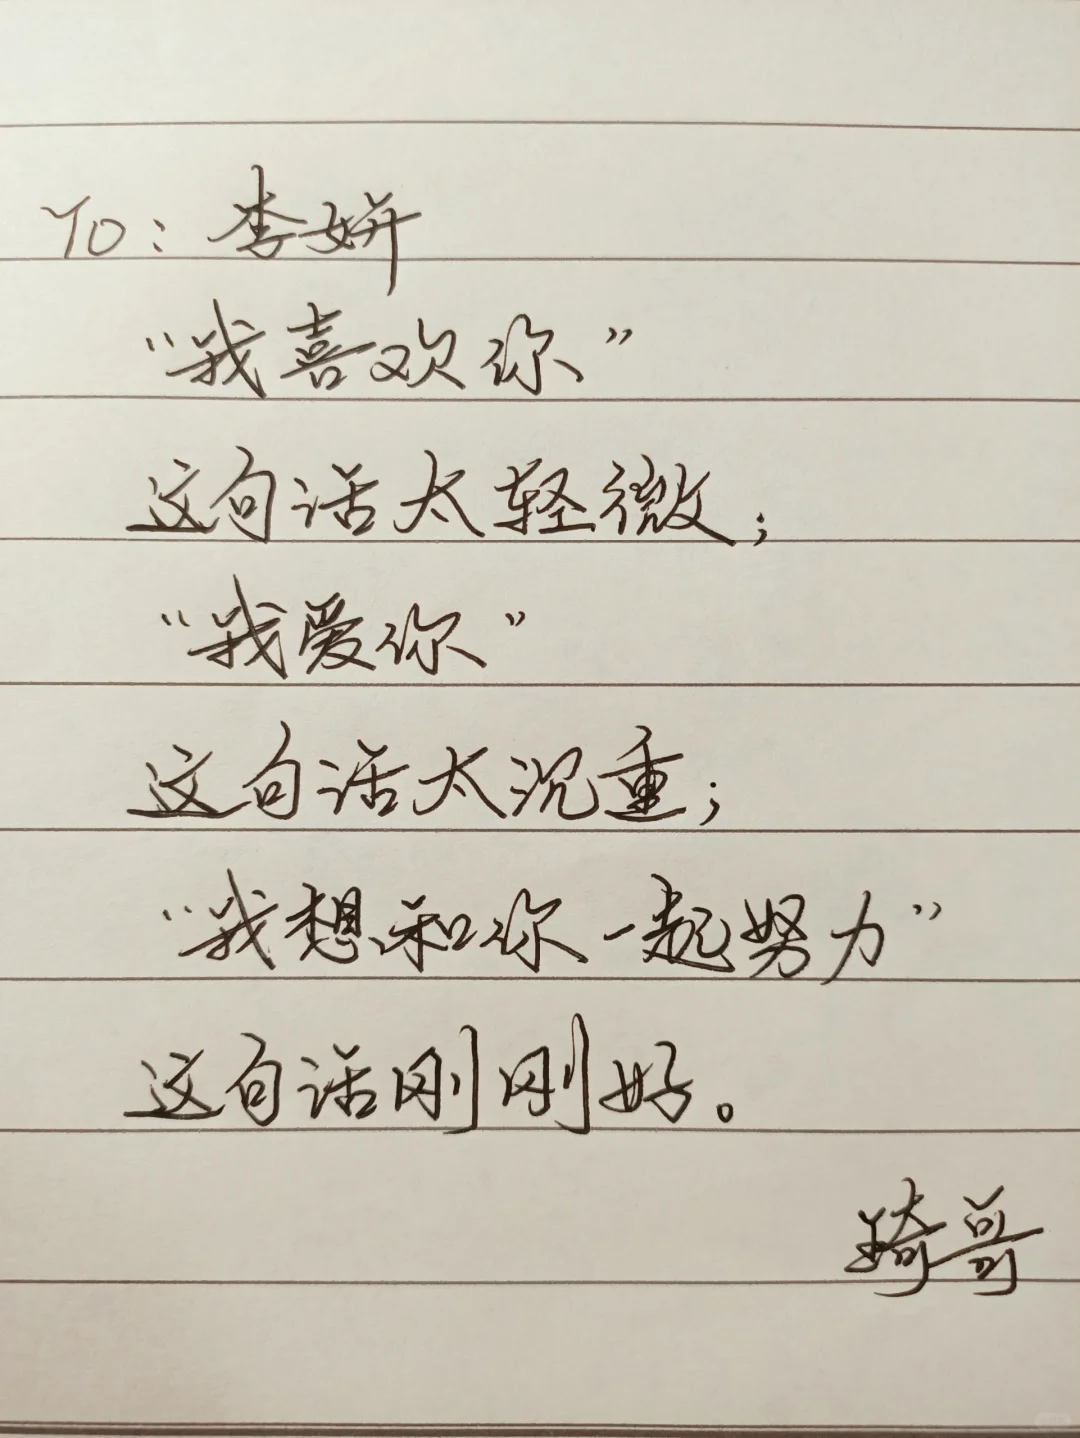 To：李姘
“我喜欢你”
这句话太轻微；
“我爱你”
这句话太沉重；
“我想和你一起努力”
这句话刚刚好。
琦哥